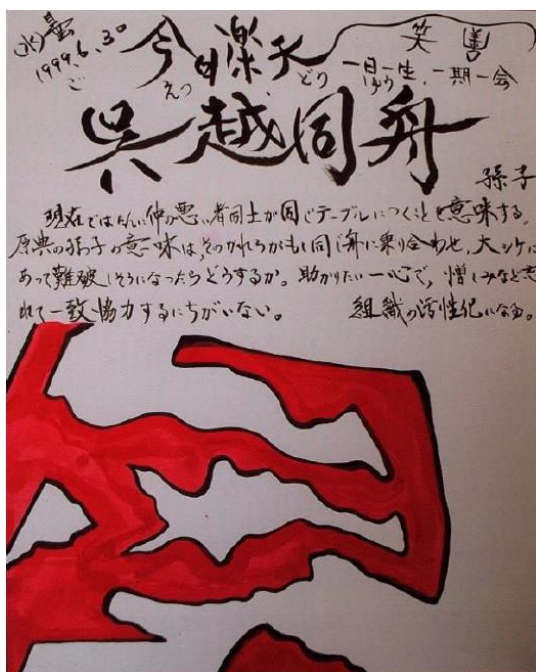 (水)曇
1999.6.30
今日楽天
笑善
一日一生、一期一会
ご えつ どう しゅう
呉越同舟
孫子
現在ではたんに仲の悪い者同士が同じテーブルにつくことを意味する。
原典の孫子の意味は、そのかれらがもし同じ舟に乗り合わせ、大シケに
あって難破しそうになったらどうするか。助かりたい一心で、憎しみなど忘
れて一致協力するにちがいない。 組織の活性化になる。